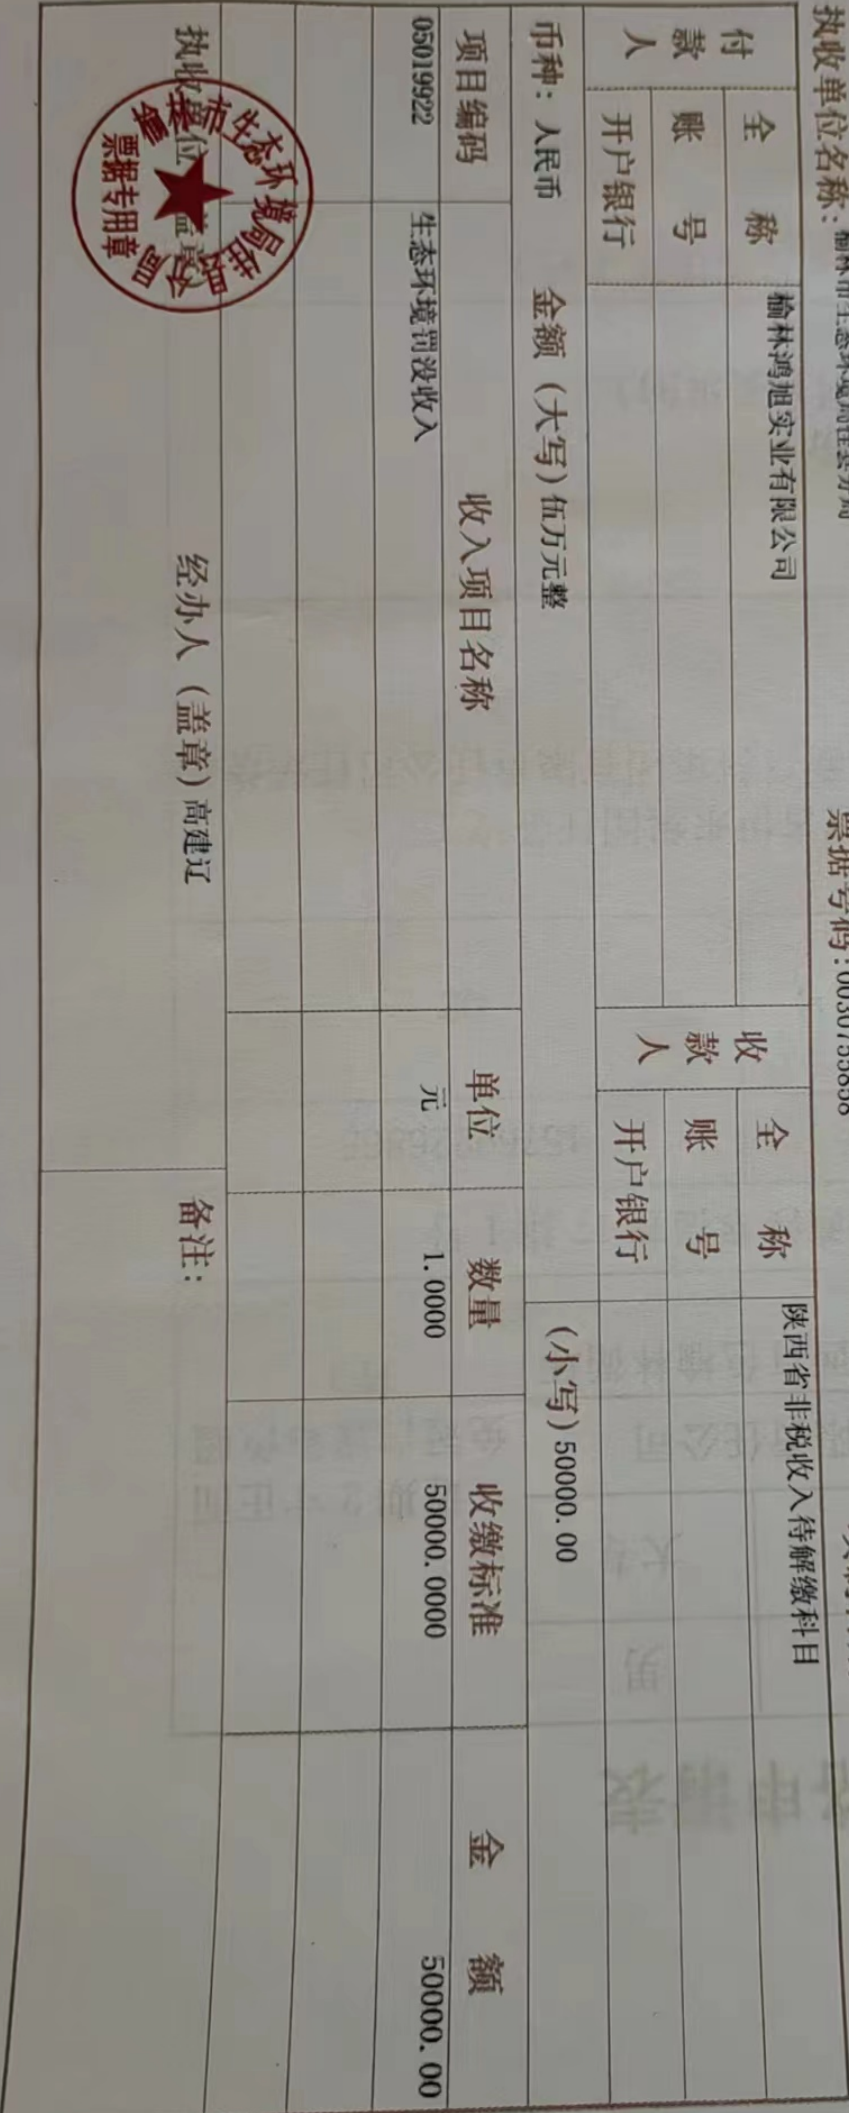 执收单位名称：榆林市生态环境局佳县分局
票据号码:0030755858
付款人
全称 榆林鸿旭实业有限公司
账号
开户银行
收款人
全称 陕西省非税收入待解缴科目
账号
开户银行
币种：人民币 金额（大写）伍万元整 （小写）50000.00
项目编码 收入项目名称 单位 数量 收缴标准 金额
05019922 生态环境罚没收入 元 1.0000 50000.0000 50000.00
执收单位（盖章） 经办人（盖章）高建辽 备注：
市生态环境局佳县分局
票据专用章